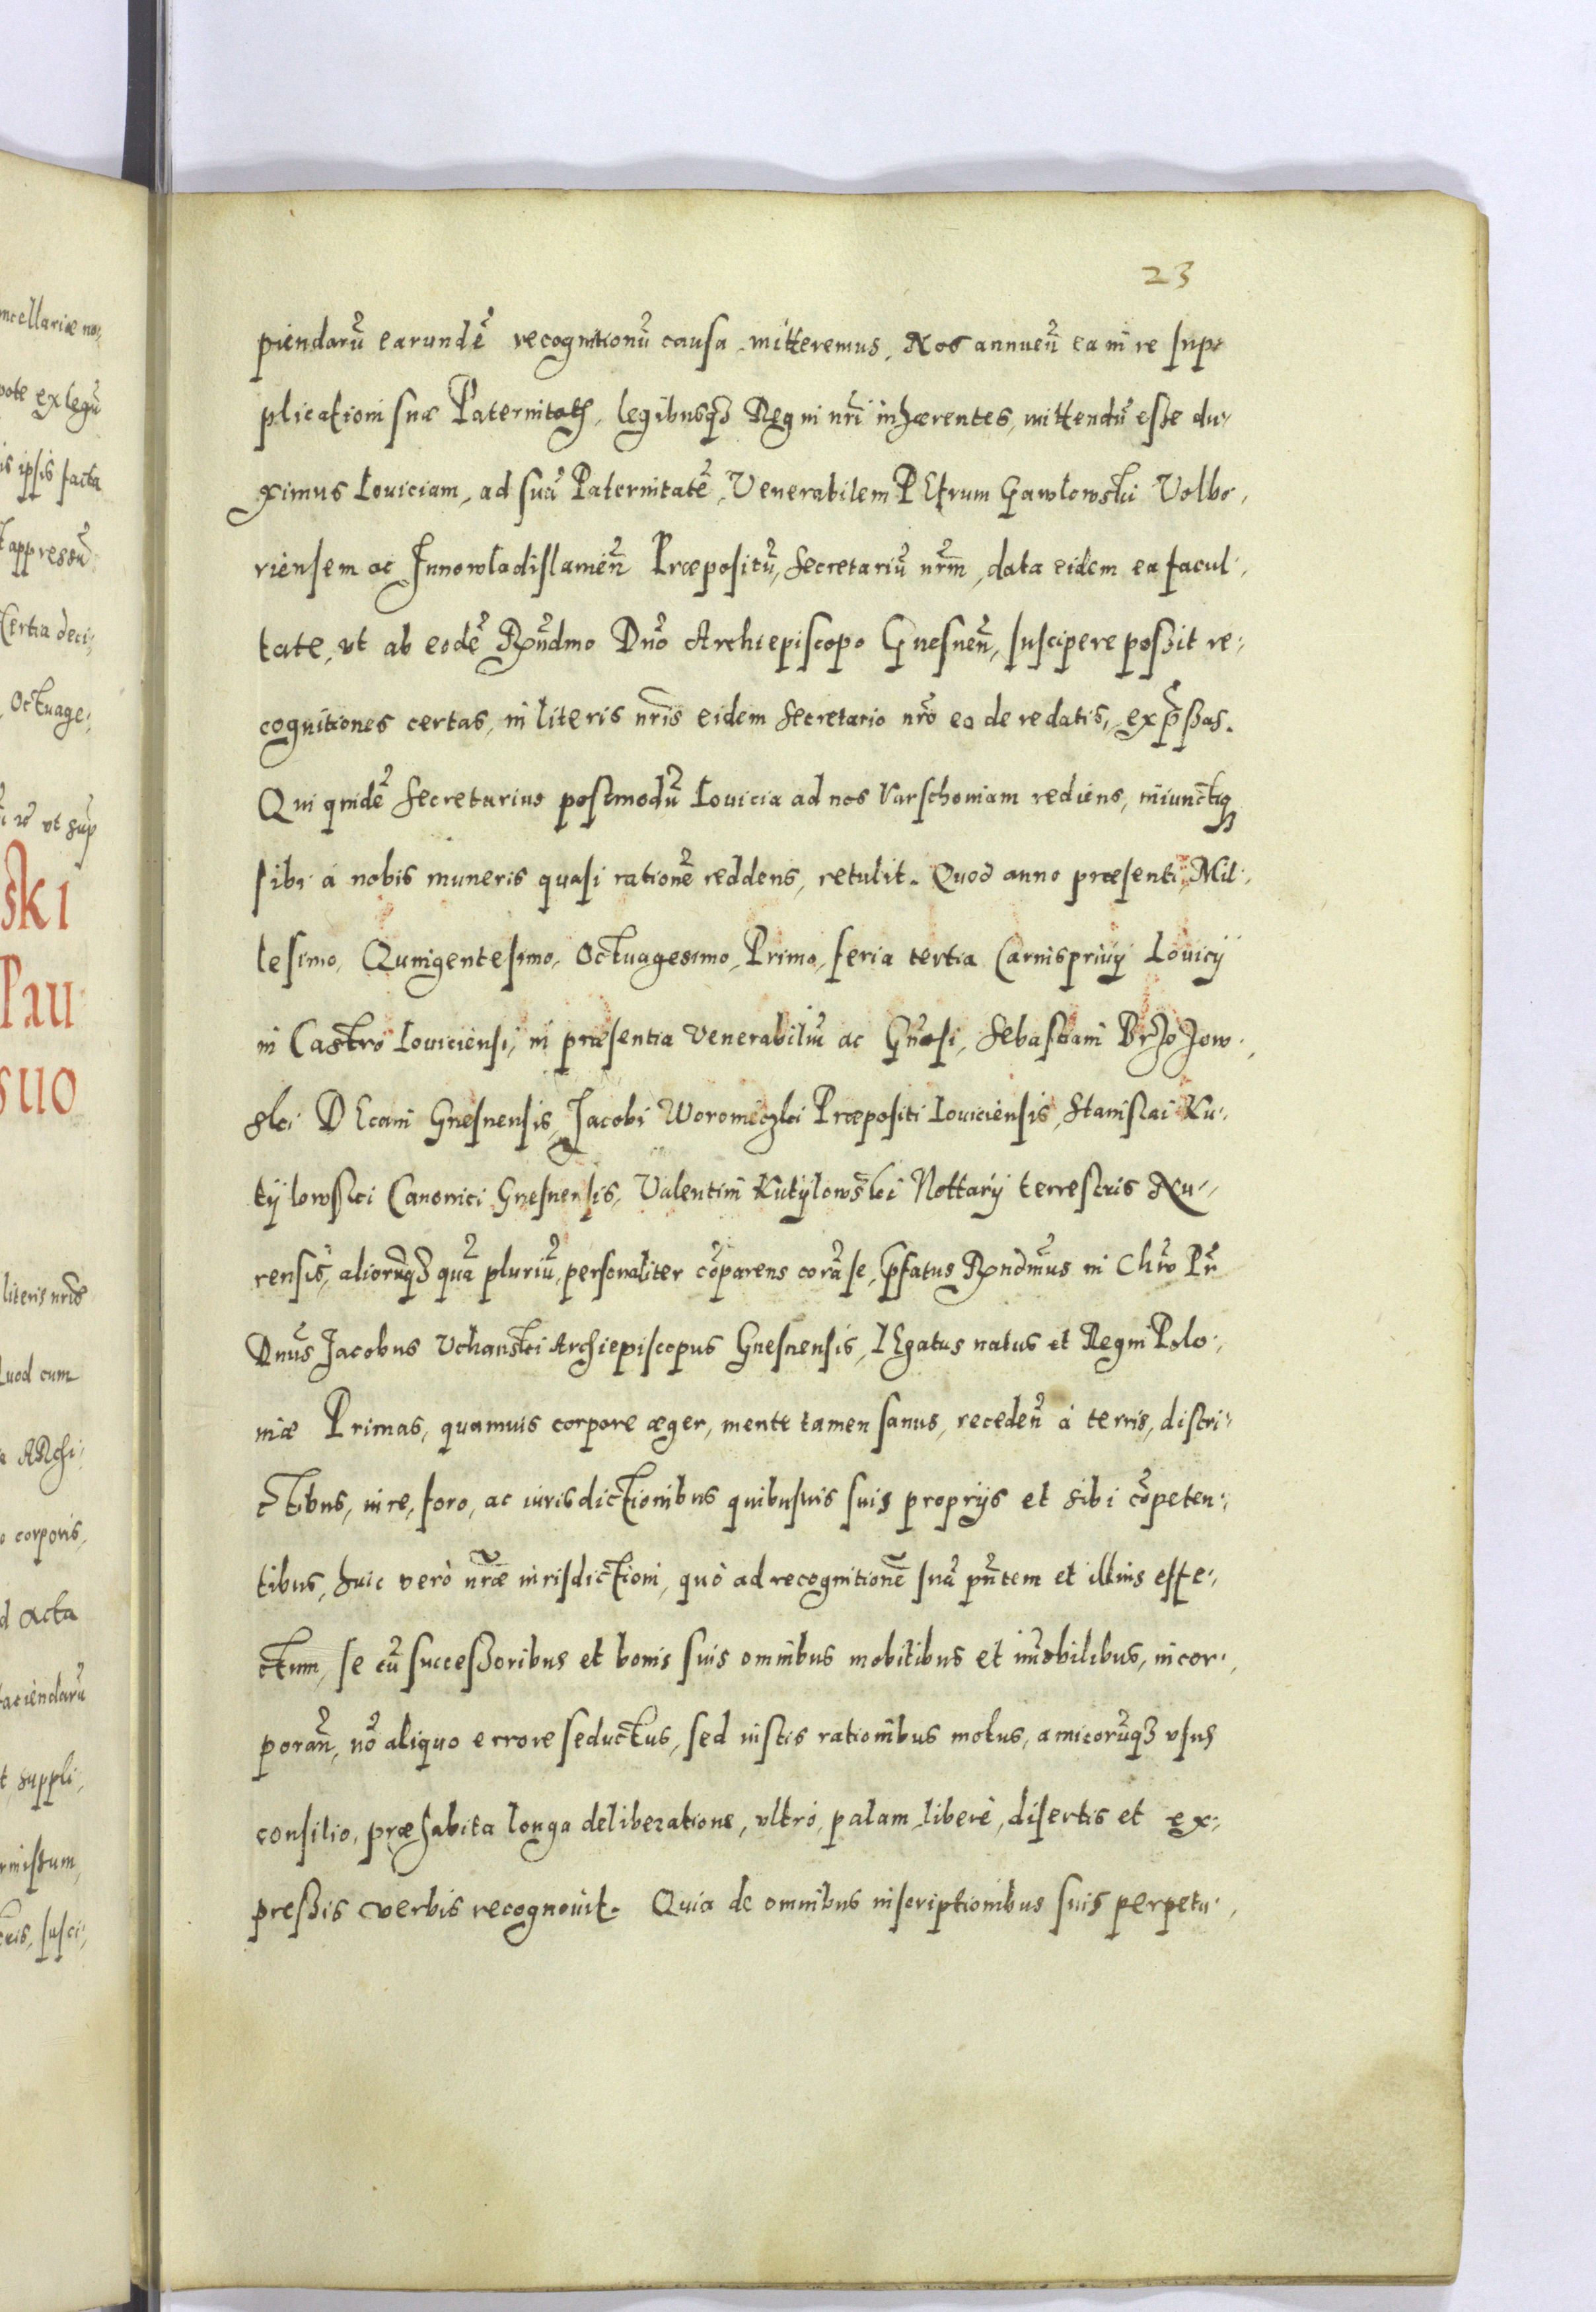 23
piendarũ earundẽ recognitionũ causa mitteremus, Nos annueñ ea in re sup-
plicationi suæ Paternitatis, legibusq₃ Regni nr̃i inhærentes, mittendũ esse du-
ximus Louiciam, ad suã Paternitatẽ, Venerabilem PEtrum Gawlowski Volbo-
riensem ac Innowladislauieñ Præpositũ, Secretariũ nr̃m, data eidem ea facul-
tate, vt ab eodẽ Rñdmo Dño Archiepiscopo Gnesneñ, suscipere poßit re-
cognitiones certas, in literis nr̃is eidem Secretario nr̃o ea de re datis, exp̃ßas.
Qui quidẽ Secretarius postmodũ Louicia ad nos Varschouiam rediens, iniunctiq₃
sibi á nobis muneris quasi rationẽ reddens, retulit. Quod anno præsenti, Mil-
lesimo, Quingentesimo, Octuagesimo, Primo, feria tertia Carnispriuij Louicij
in Castro Louiciensi, in præsentia Venerabiliũ ac Gñosi, Sebastiani Brzozow-
skei DEcani Gnesnensis, Jacobi Woromeczkei Præpositi Louiciensis, Stanislai Ku-
tylowskei Canonici Gnesnensis, Valentini Kutylowskei Nottarij terrestris Nu-
rensis, aliorũq₃ quã pluriũ, personaliter cõparens corã se, p̃fatus Rñdmus in Chrõ Pr̃
Dñus Jacobus Vchanskei Archiepiscopus Gnesnensis, LEgatus natus et Regni Polo-
niæ Primas, quamuis corpore æger, mente tamen sanus, recedeñ á terris, distri-
ctibus, iure, foro, ac iurisdictionibus quibusuis suis proprijs et sibi cõpeten-
tibus, huic verò nr̃æ iurisdictioni, quò ad recognitionẽ suã pñtem et illius effe-
ctum, se cũ successoribus et bonis suis omnibus mobilibus et im̃obilibus, incor-
porañ, nõ aliquo errore seductus, sed iustis rationibus motus, amicorũq₃ vsus
consilio, præhabita longa deliberatione, vltrò, palam, liberè, disertis et ex-
preßis verbis recognouit. Quia de omnibus inscriptionibus suis perpetu-